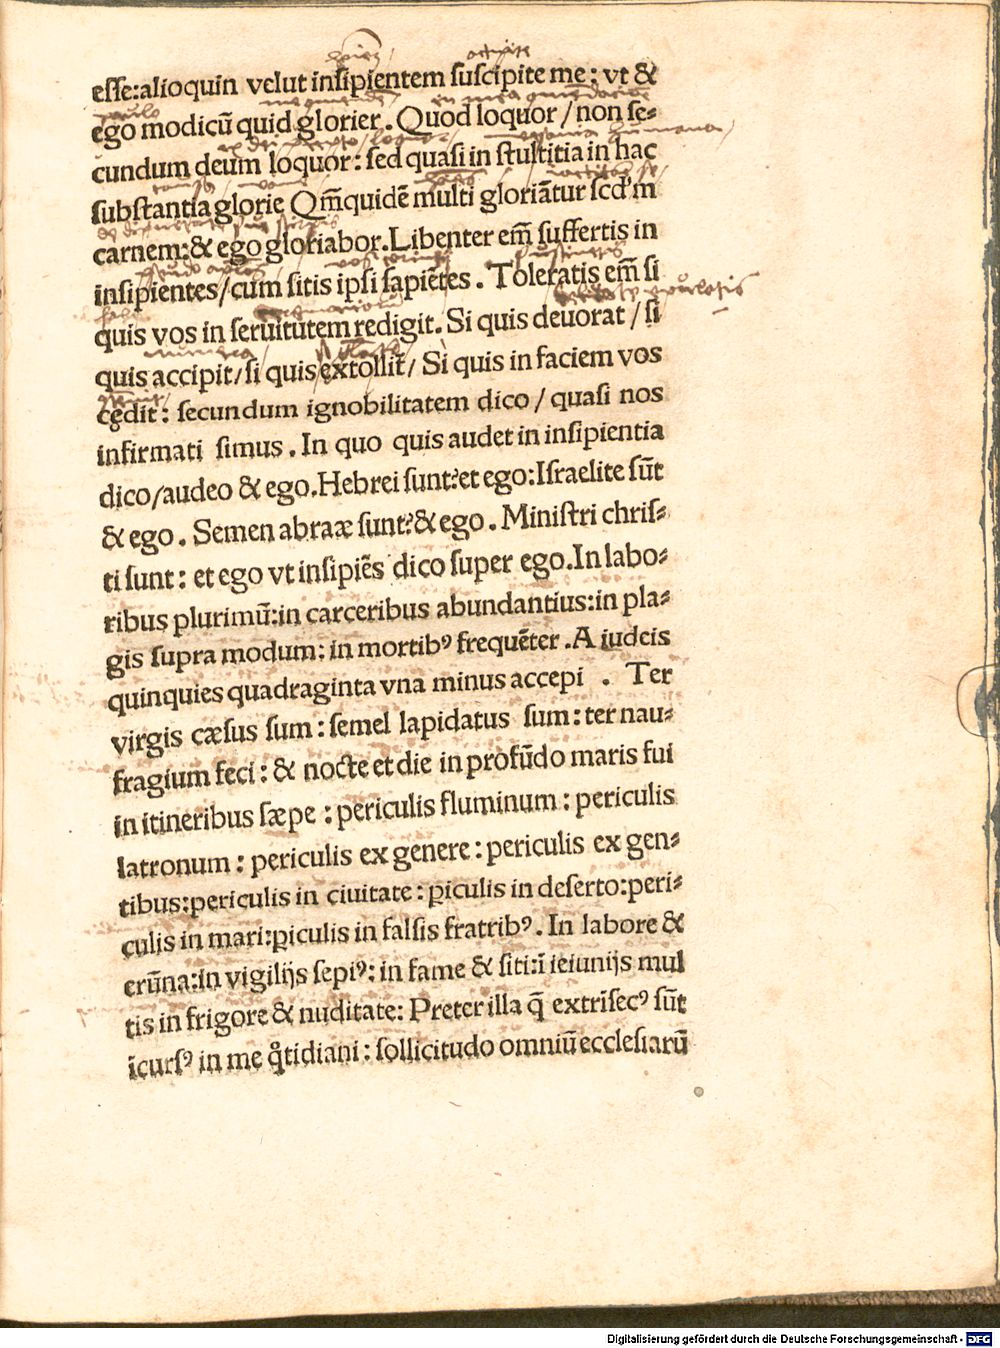 esse:alioquin velut insipientem suscipite me: vt &
ego modicū quid glorier. Quod loquor / non se-
cundum deum loquor: sed quasi in stultitia in hac
substantia glorie Qm̄quidē multi gloriātur scd'm
carnem:& ego gloriabor. Libenter em̄ suffertis in
insipientes/cum sitis ipsi sapiētes. Toleratis em̄ si
quis vos in seruitutem redigit. Si quis deuorat / si
quis accipit/si quis extollit̄/ Si quis in faciem vos
cędit: secundum ignobilitatem dico / quasi nos
infirmati simus. In quo quis audet in insipientia
dico/audeo & ego. Hebrei sunt?et ego:Israelite sūt
& ego. Semen abraæ sunt?& ego. Ministri chris-
ti sunt: et ego vt insipiēs dico super ego. In labo-
ribus plurimū:in carceribus abundantius:in pla-
gis supra modum: in mortibꝰ frequēter. A iudeis
quinquies quadraginta vna minus accepi . Ter
virgis cæsus sum: semel lapidatus sum: ter nau-
fragium feci: & nocte et die in profūdo maris fui
in itineribus sæpe : periculis fluminum : periculis
latronum : periculis ex genere : periculis ex gen-
tibus:periculis in ciuitate : ꝑiculis in deserto:peri-
culis in mari:ꝑiculis in falsis fratribꝰ. In labore &
erūna:in vigilijs sepiꝰ: in fame & siti:ī ieiunijs mul
tis in frigore & nuditate: Preter illa q̄ extrīsecꝰ sūt
īcursꝰ in me q̊tidiani : sollicitudo omniū ecclesiarū
Digitalisierung gefördert durch die Deutsche Forschungsgemeinschaft - DFG